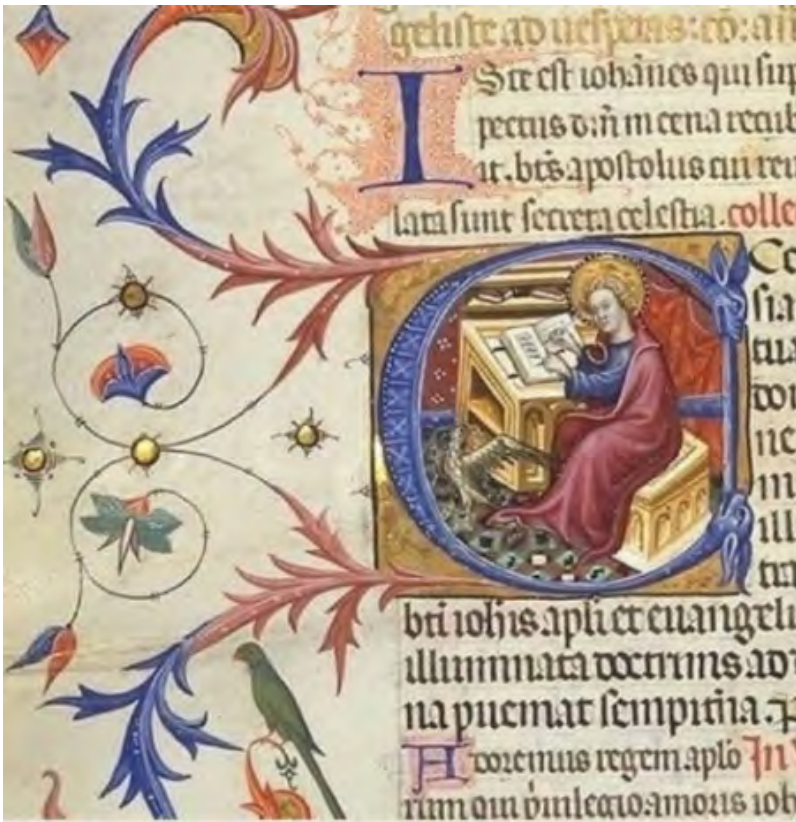 geliste ad uesperas: co: an
Iste est iohanes qui sup
pectus dni in cena recub
it. bts apostolus cui reu
lata sunt secreta celestia. colle
E cc
sia
tua
do
ne
ill
bti iohis apli et euangeli
illuminata doctrinis ad
na puemat sempitna. P
Adoremus regem aplo In
rum qui puilegio amoris ioh